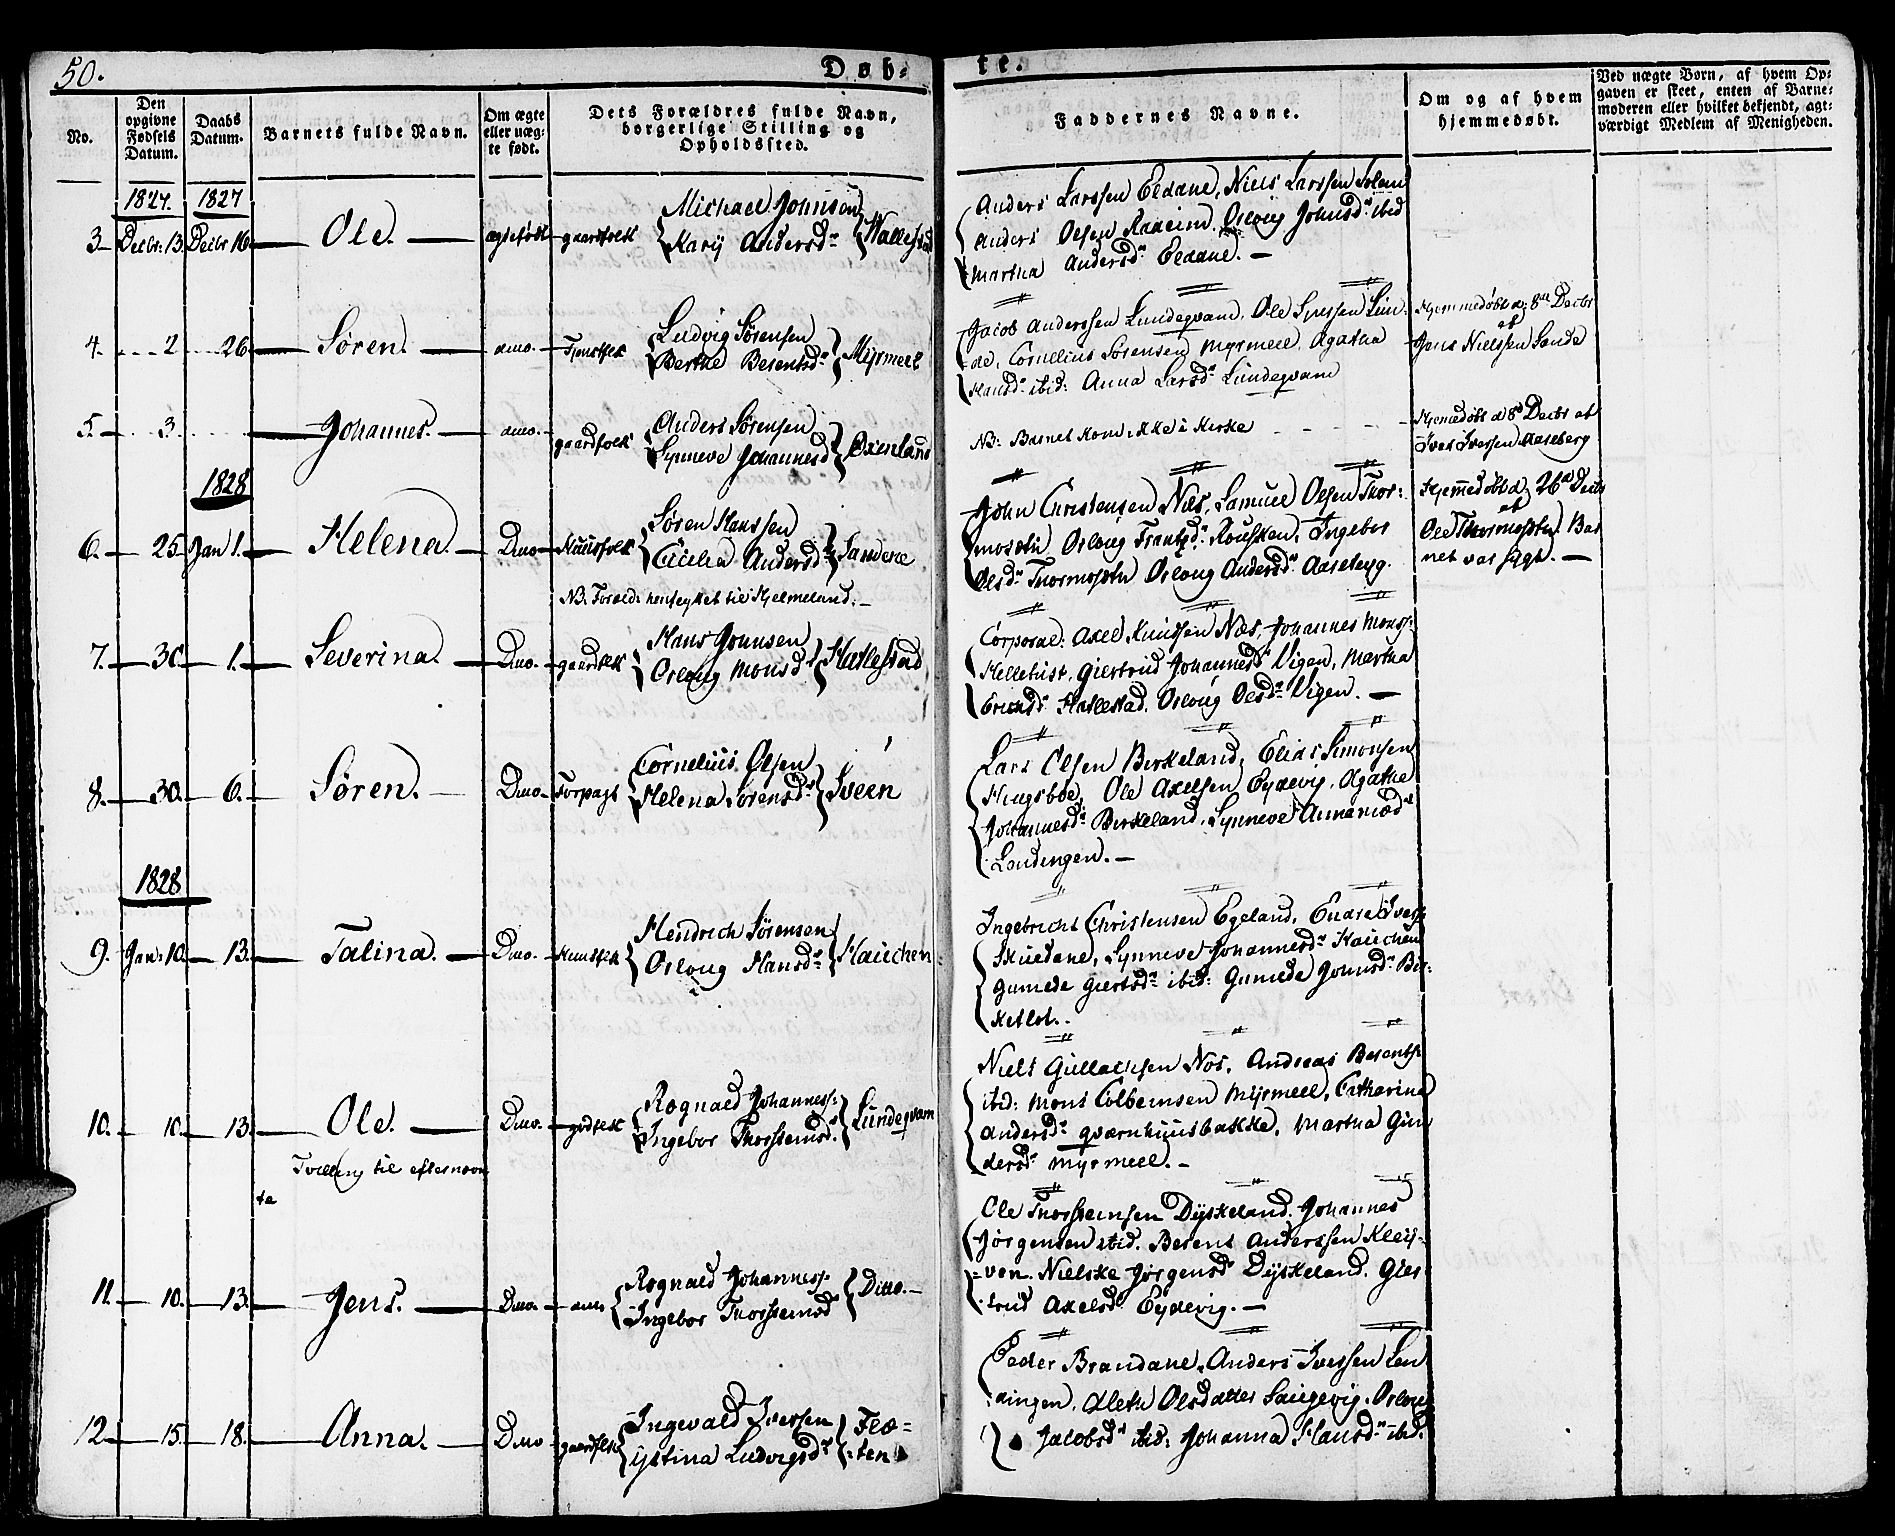 50.
Døb-
te.
No.
Den opgivne Fødsels Datum.
Daabs Datum.
Barnets fulde Navn.
Om ægte eller uæg-te født.
Dets Forældres fulde Navn, borgerlige Stilling og Opholdssted.
Faddernes Navne.
Om og af hvem hjemmedøbt.
Ved uægte Børn, af hvem Op-
gaven er skeet, enten af Barne-
moderen eller hvilket bekjendt, agt-
værdigt Medlem af Menigheden.
1827. 1827
3 Decbr. 13 Decbr 16 Ole. ægtefødt gaardfolk Michael Johnsen
Karÿ Andersd.
Anders Larssen Eldane, Niels Larssen
Anders Olsen Raaeim. Orloug Johnsd. ibid
Martha Andersd. Eldane.
4. 2 26 Søren. dito. Ludvig Sørensen
Berthe Berentsd. Mÿrmell
Jacob Anderssen Lundeqvam, Ole Lun-
de, Cornelius Sørensen Myrmell, Agatha
Hansd. ibid: Anna Larsd. Lundeqvam
Hjemmedøbt d. 8de Decbr
af
Jens Nielsen Sande
5. 3. Johannes. dito. gaardfolk Anders Sørensen
Synneve Johannesd Øxenland
NB: Barnet kom ikke i Kirke
Hjemedøbt d 8d Decbr af
Iver Iversen Aaseberg
1828
6. 25. Jan 1. Helena. Dito Huusfolk Søren Hanssen
Cicilia Andersd.
NB: Foræld: henflyttet til Hjelmeland.
John Christensen Næs, Samuel Olsen Thor-
Orloug Ingebor
Olsd. Orloug Andersd. Aaseberg.
Hjemmedøbt d. 26d Decbr
af
Ole Bar
net var sÿgt.
7. 30. 1. Severina. Dito. gaardfolk Hans Johnsen
Orloug Monsd. Hatlestad
Corporal: Axel Knudssen Næs, Johannes Monss.
Giertrud Johannesd. Vigen, Martha
Ericksd. Hatlestad, Orloug Olsd. Vigen.
8. 30. 6. Søren. Dito Cornelius Olsen
Helena Sørensd. Sveen
Lars Olsen Birkeland, Elias Simonsen
Ole Axelsen Eydevig, Agathe
Johannesd. Birkeland, Synneve
1828
9. Jan: 10. 13. Talina. Dito. Huusfolk Hendrich Sørensen
Orloug Hansd. Hauchen
Ingebricht Christensen Egeland, Endre Ivers:
Skuedane, Synneve Johannesd. Hauchen
Gunilde Giertsd. ibid: Gunilde Johnsd. Bir-
10. 10. 13. Ole. Dito. grdfolk Rognald Johanness:
Ingebor Thorsteinsd. Lundeqvam
Tvilling til efternævn
te
Niels Gullachsen Nos, Andreas Berents:
ibid: Mons Colbeinsen Mÿrmell, Catharina
Andersd. qværnhuusbakke, Martha Gun
dersd. Myrmell.
11. 10. 13. Jens. Dito. dito Rognald Johanness:
Ingebor Thorsteinsd Dito.
Ole Thorsteinsen Dÿskeland, Johannes
Jørgensen ibid. Berent Anderssen Kleÿ-
ven. Nielske Jørgensd. Dÿskeland. Gier
trud Axelsd. Eydevig.
12 15. 18. Anna. Dito gaardfolk Ingevald Iversen
Ludvigsd. Flø-
ten
Peder Brandane, Anders Iversen Len
dingen, Olsdatter Orloug
Jacobsd. ibid: Johanna Hansd. ibid.